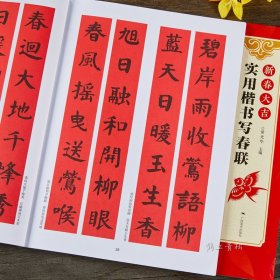 碧岸雨收鶯語
藍天日暖玉生香
旭日融和開柳眼
春風搖曳送鶯喉
春迴大地千峰秀
新春大吉
实用楷书写春联